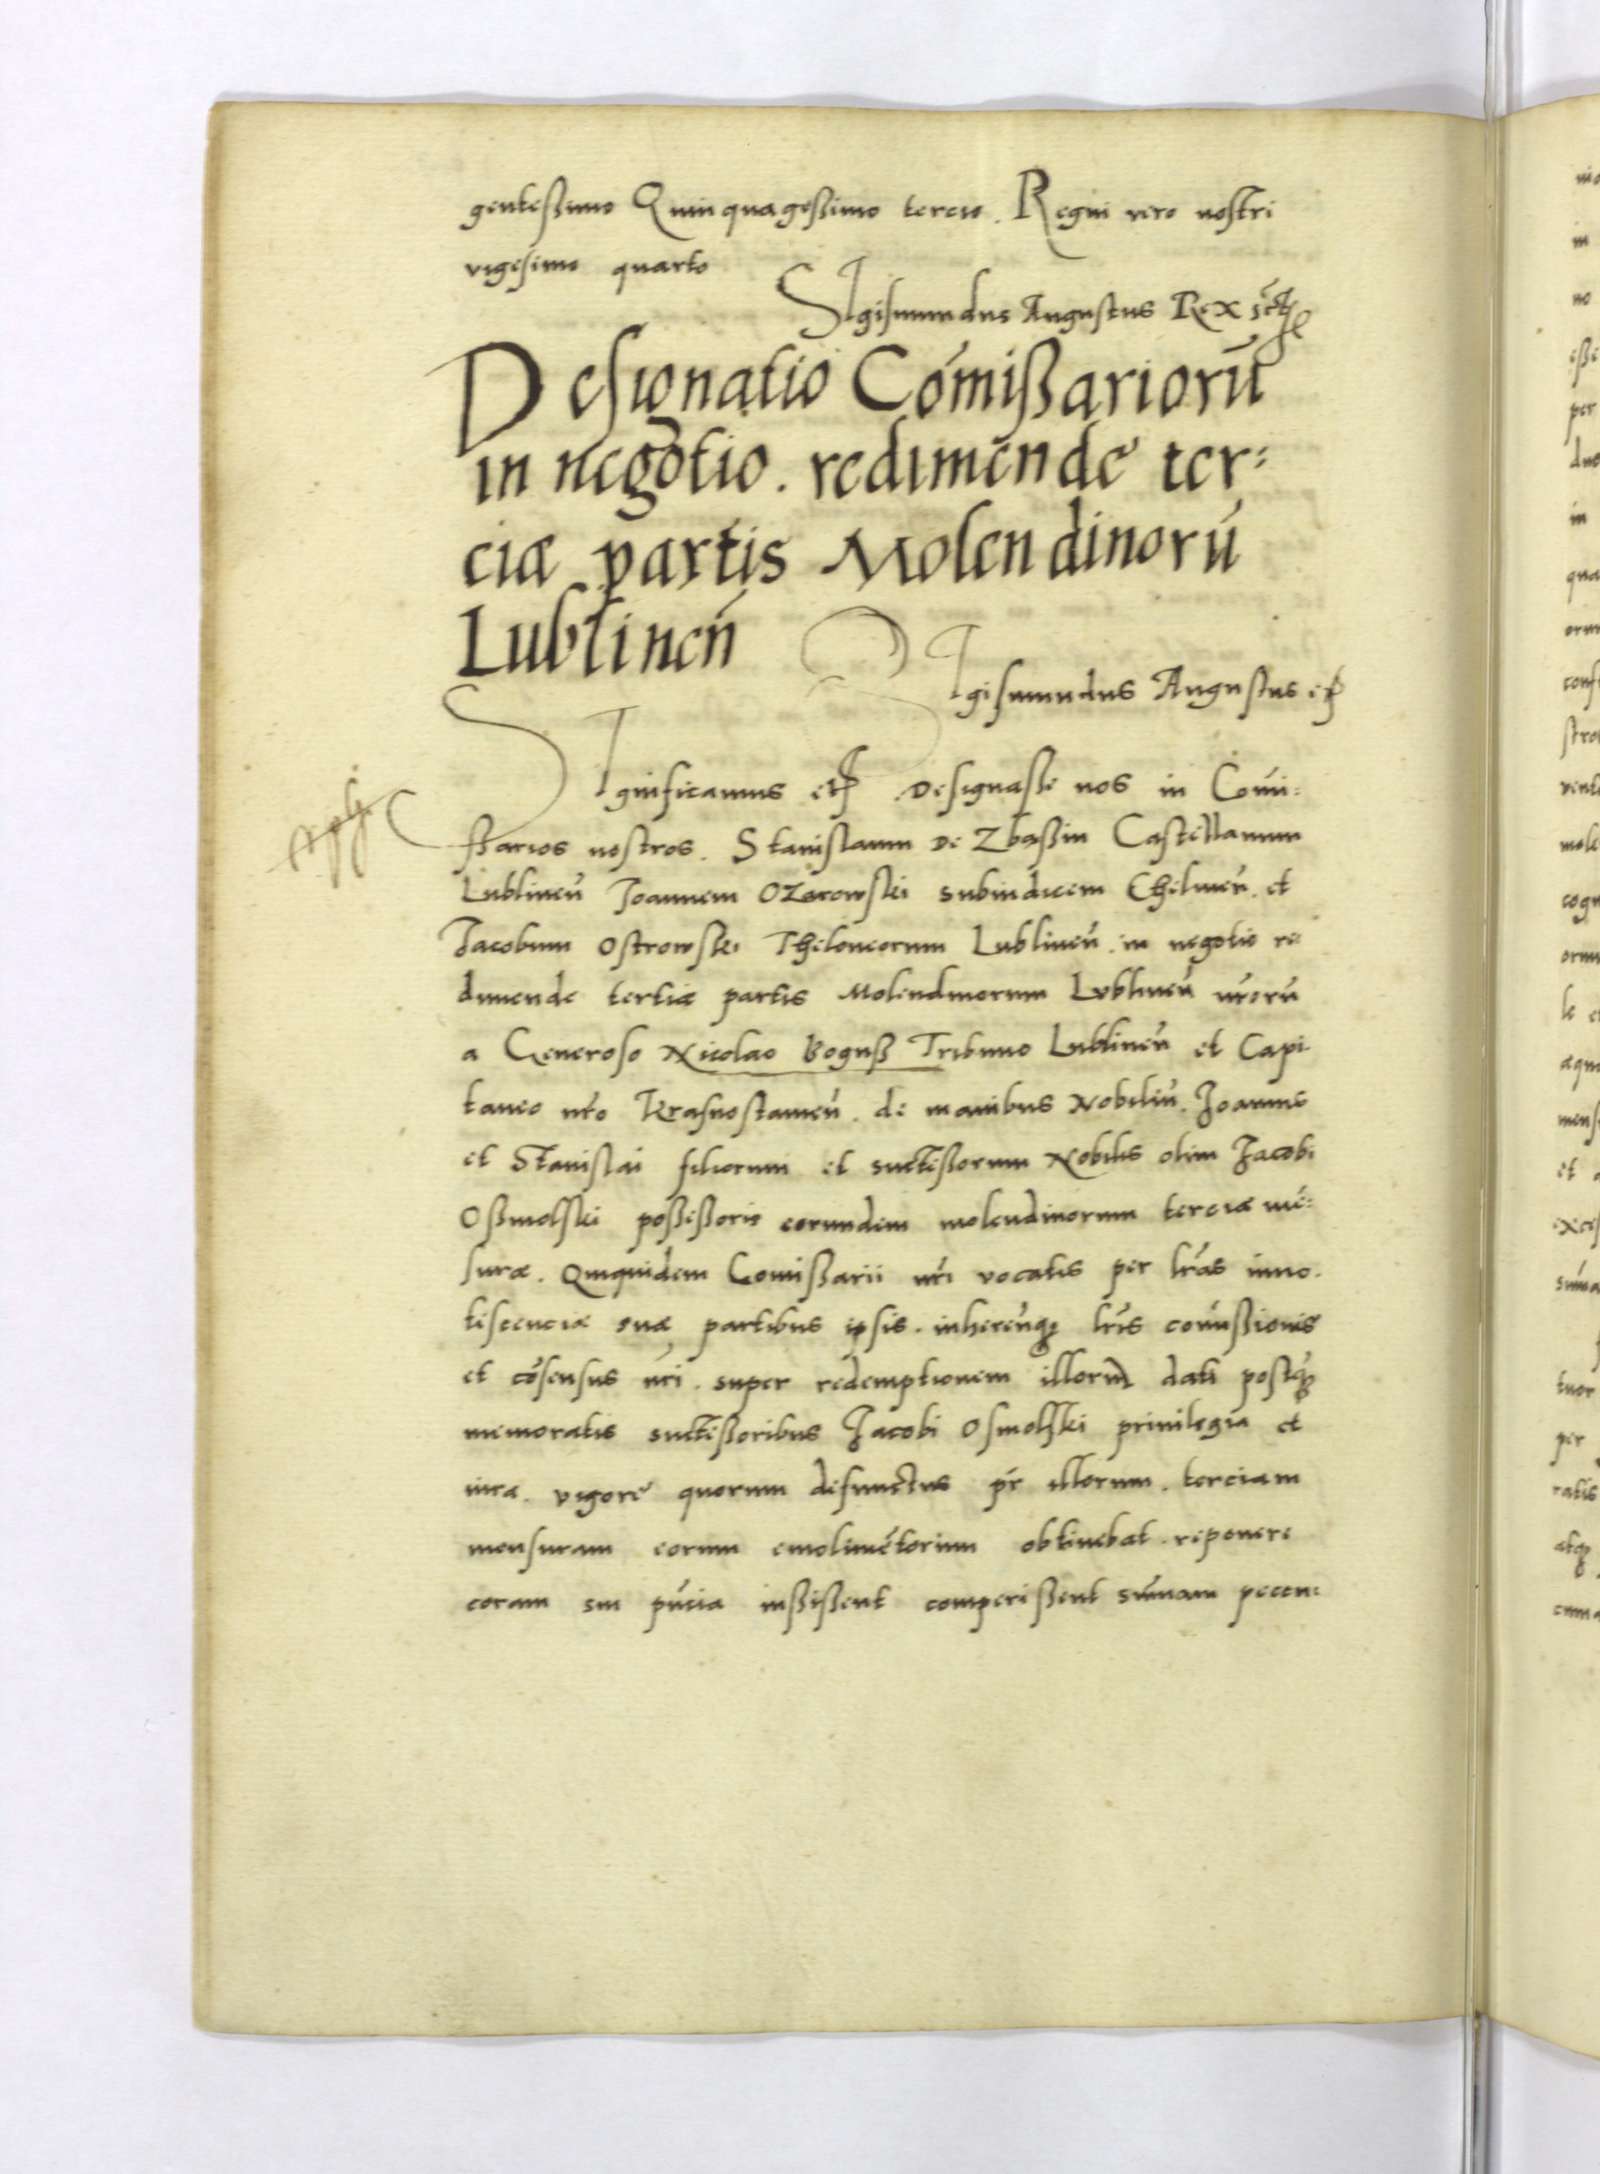 genteßimo Quinquageßimo tercio. Regni vero nostri
vigesimo quarto
SIgismundus Augustus Rex
Designatio Cõmißariorũ
in negotio. redimende ter:
ciæ partis Molendinorũ
Lublineñ
SIgismundus Augustus etc
SIgnificamus etc. Designasse nos in Comi:
ßarios nostros. Stanislaum de Zbaßin Castellanum
Lublineñ Joannem Ozarowski subiudicem Chelmeñ. et
Jacobum Ostrowski Theloneorum Lublineñ. in negotio re
dimende tertiæ partis Molendinorum Lublineñ ñrorũ
a Generoso Nicolao Boguß Tribuno Lublineñ et Capi
taneo ñro Krasnostaweñ. de manibus Nobiliũ. Joannis
et Stanislai filiorum et succeßorum Nobilis olim Jacobi
Oßmolski poßeßoris eorundem molendinorum terciæ mẽ:
suræ. Quiquidem Comißarii ñri vocatis per lr̃as inno.
tiscenciæ suæ partibus ipsis. inherẽnq3 lr̃is comißionis
et cõsensus ñri. super redemptionem illorum dati postq3
memoratis succeßoribus Jacobi Osmolski privilegia et
iura. vigore quorum defunctus pr̃ illorum. terciam
mensuram eorum emolimẽtorum obtinebat. reponere
coram sui pñcia iußißent comperißent sum̃am pecen: